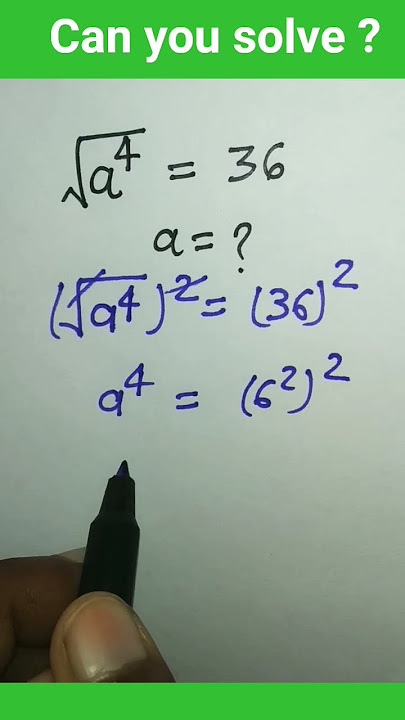 Can you solve ?
√a⁴ = 36
a = ?
(√a⁴)² = (36)²
a⁴ = (6²)²